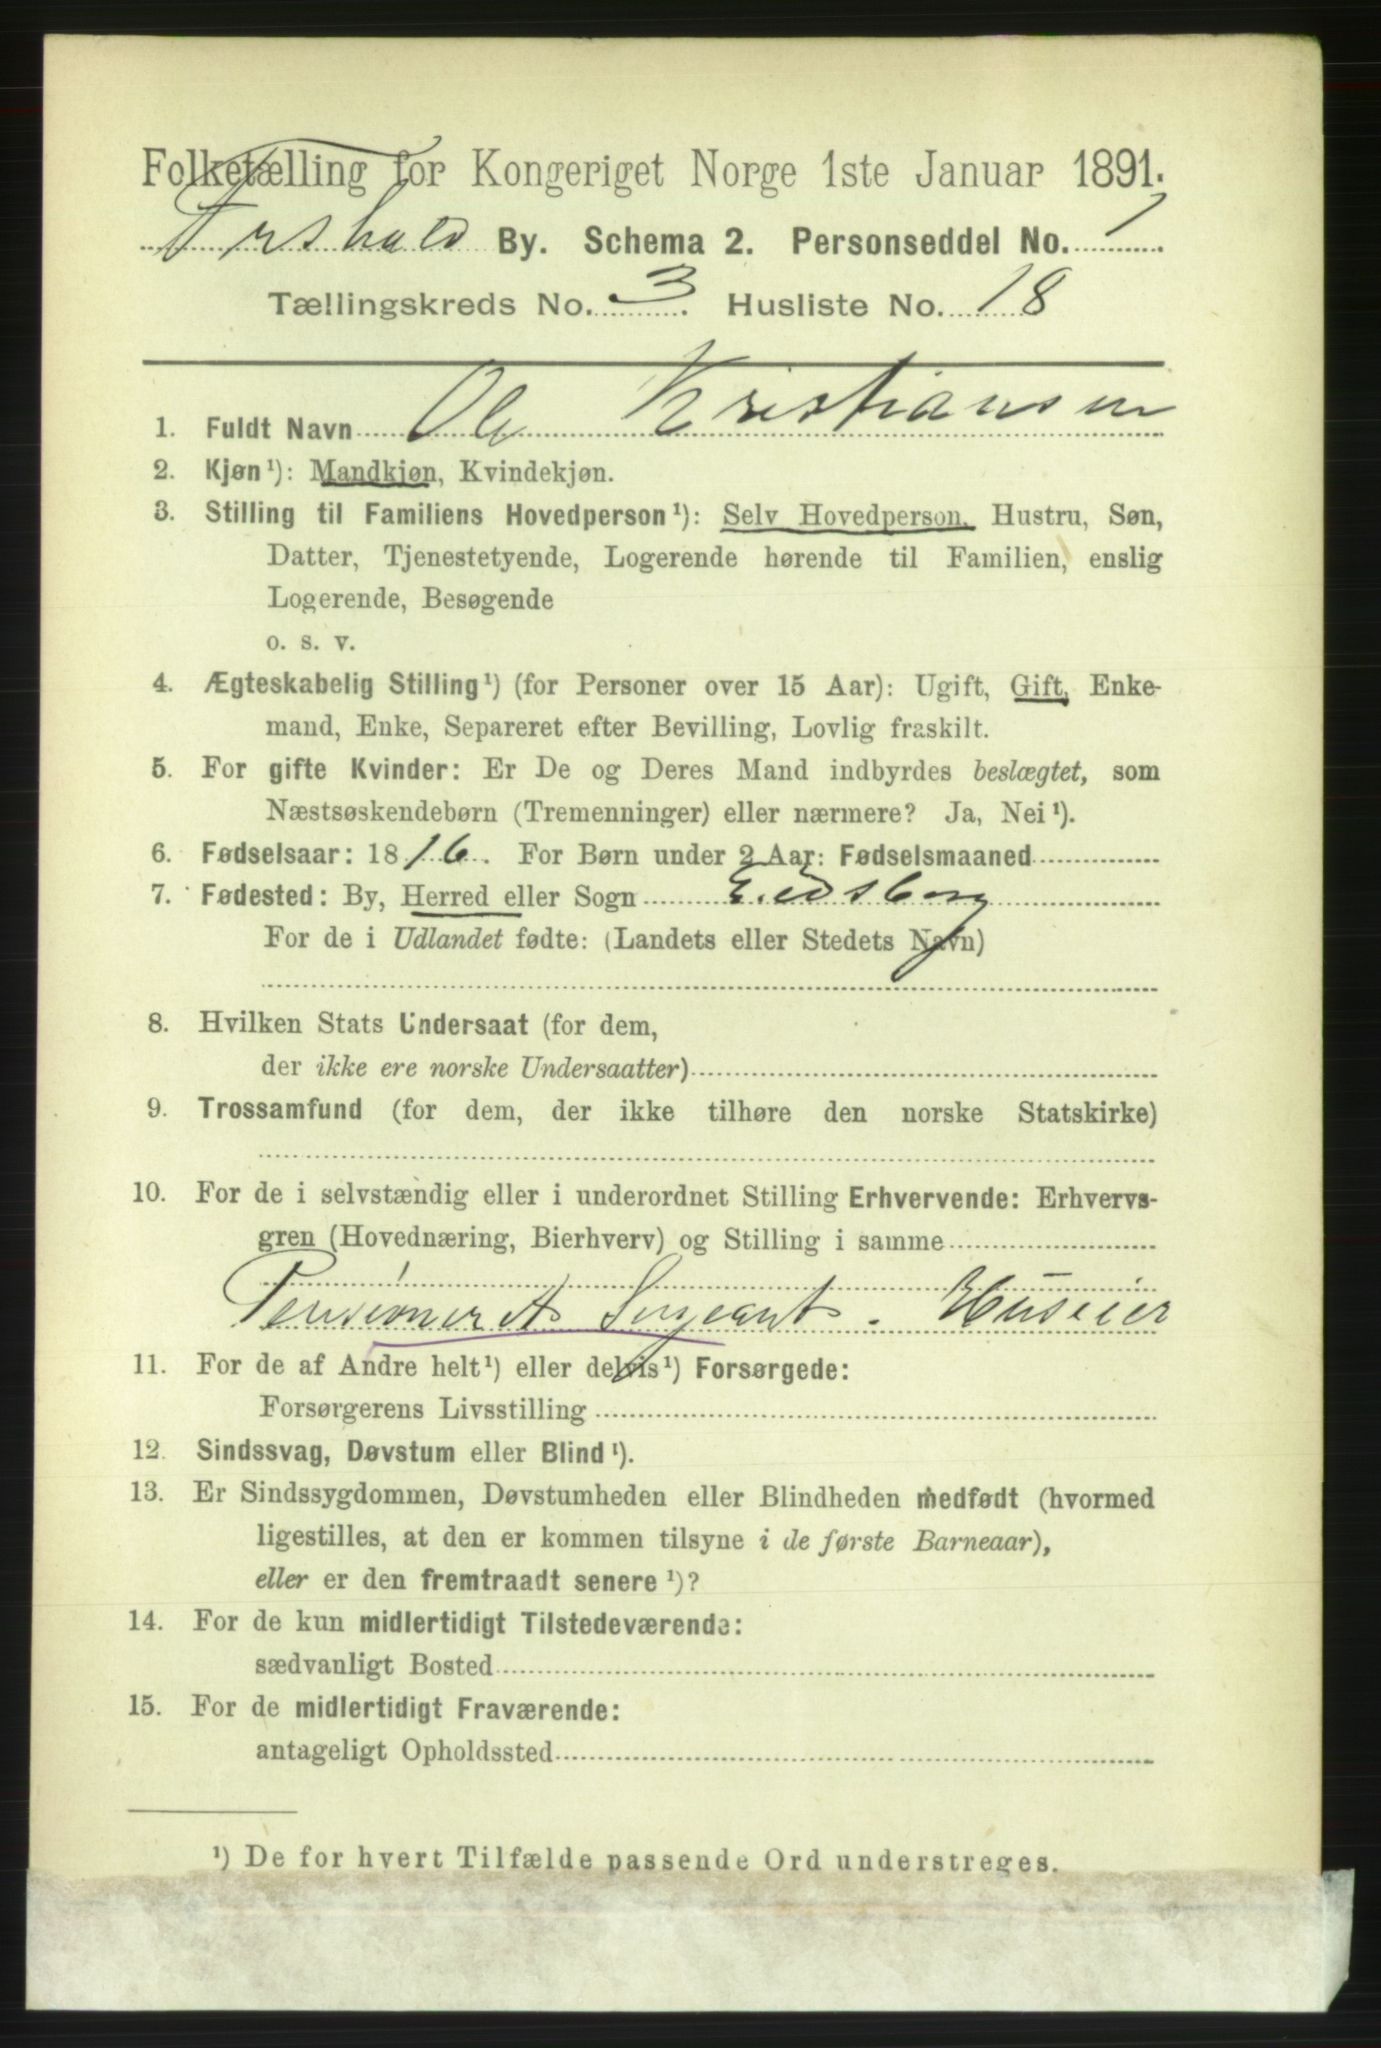 Folketælling for Kongeriget Norge 1ste Januar 1891.
Frshald By. Schema 2. Personseddel No. 1
Tællingskreds No. 3. Husliste No. 18
1. Fuldt Navn Ole Kristiansen
2. Kjøn¹): Mandkjøn, Kvindekjøn.
3. Stilling til Familiens Hovedperson¹): Selv Hovedperson, Hustru, Søn,
Datter, Tjenestetyende, Logerende hørende til Familien, enslig
Logerende, Besøgende
o. s. v.
4. Ægteskabelig Stilling¹) (for Personer over 15 Aar): Ugift, Gift, Enke-
mand, Enke, Separeret efter Bevilling, Lovlig fraskilt.
5. For gifte Kvinder: Er De og Deres Mand indbyrdes beslægtet, som
Næstsøskendebørn (Tremenninger) eller nærmere? Ja, Nei¹).
6. Fødselsaar: 1816. For Børn under 2 Aar: Fødselsmaaned
7. Fødested: By, Herred eller Sogn Eidsberg
For de i Udlandet fødte: (Landets eller Stedets Navn)
8. Hvilken Stats Undersaat (for dem,
der ikke ere norske Undersaatter)
9. Trossamfund (for dem, der ikke tilhøre den norske Statskirke)
10. For de i selvstændig eller i underordnet Stilling Erhvervende: Erhvervs-
gren (Hovednæring, Bierhverv) og Stilling i samme
Pensioneret Sergeant. Huseier
11. For de af Andre helt¹) eller delvis¹) Forsørgede:
Forsørgerens Livsstilling
12. Sindssvag, Døvstum eller Blind¹).
13. Er Sindssygdommen, Døvstumheden eller Blindheden medfødt (hvormed
ligestilles, at den er kommen tilsyne i de første Barneaar),
eller er den fremtraadt senere¹)?
14. For de kun midlertidigt Tilstedeværende:
sædvanligt Bosted
15. For de midlertidigt Fraværende:
antageligt Opholdssted
¹) De for hvert Tilfælde passende Ord understreges.